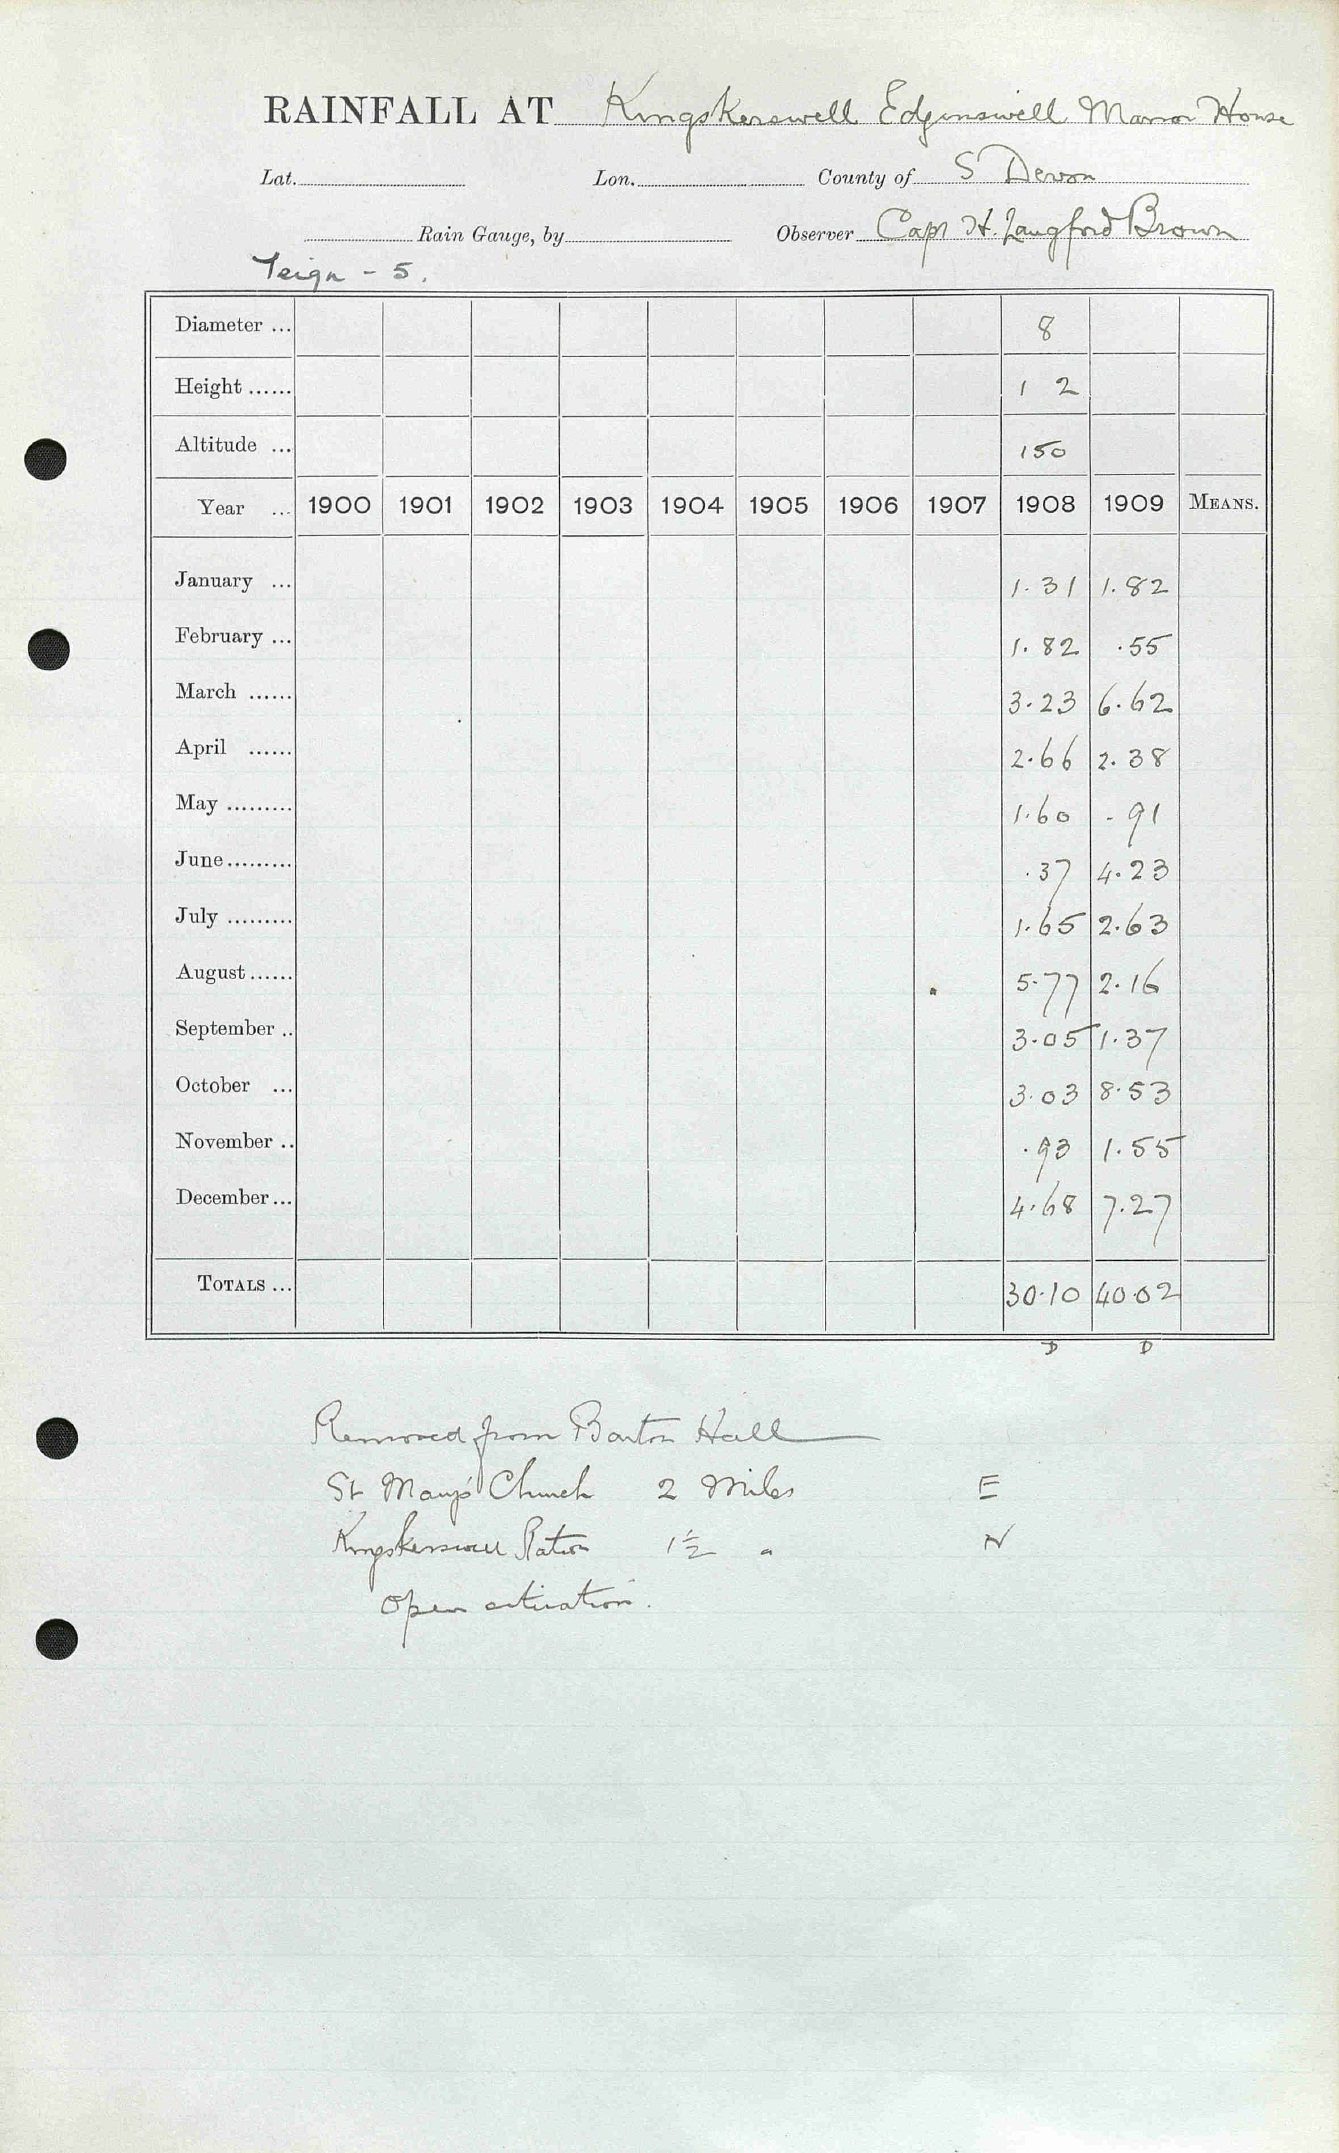 RAINFALL AT Kingskerswell Edginswell Manor House
Lat. Lon. County of S Devon
Rain Gauge, by Observer Capt H. Langford Brown
Teign - 5.
Diameter ... 8
Height ...... 1 2
Altitude ... 150
Year ... 1900 1901 1902 1903 1904 1905 1906 1907 1908 1909 MEANS.
January ... 1.31 1.82
February ... 1.82 .55
March ...... 3.23 6.62
April ...... 2.66 2.38
May ......... 1.60 .91
June ......... .37 4.23
July ......... 1.65 2.63
August ...... 5.77 2.16
September .. 3.05 1.37
October ... 3.03 8.53
November .. .93 1.55
December ... 4.68 7.27
TOTALS ... 30.10 40.02
D D
Removed from Barton Hall
St Mary's Church 2 Miles E
Kingskerswell Station 1½ " N
Open situation.